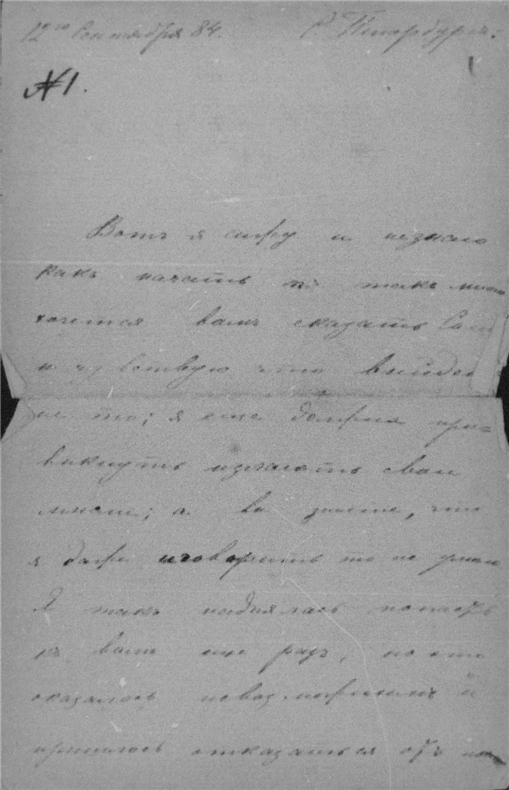 12го Сентября 84. С. Птербургъ.
№1.
Вотъ я сижу и незнаю
какъ начать такъ много
хочется вамъ сказать
и чувствую что выйдет
не то; я еще должна при=
выкнуть излагать свои
мысли; а вы знаете, что
я даже и говорить то не умею
Я такъ надиялась попасть
къ вамъ еще разъ, но это
оказалось невозможнымъ и
пришлось отказаться отъ